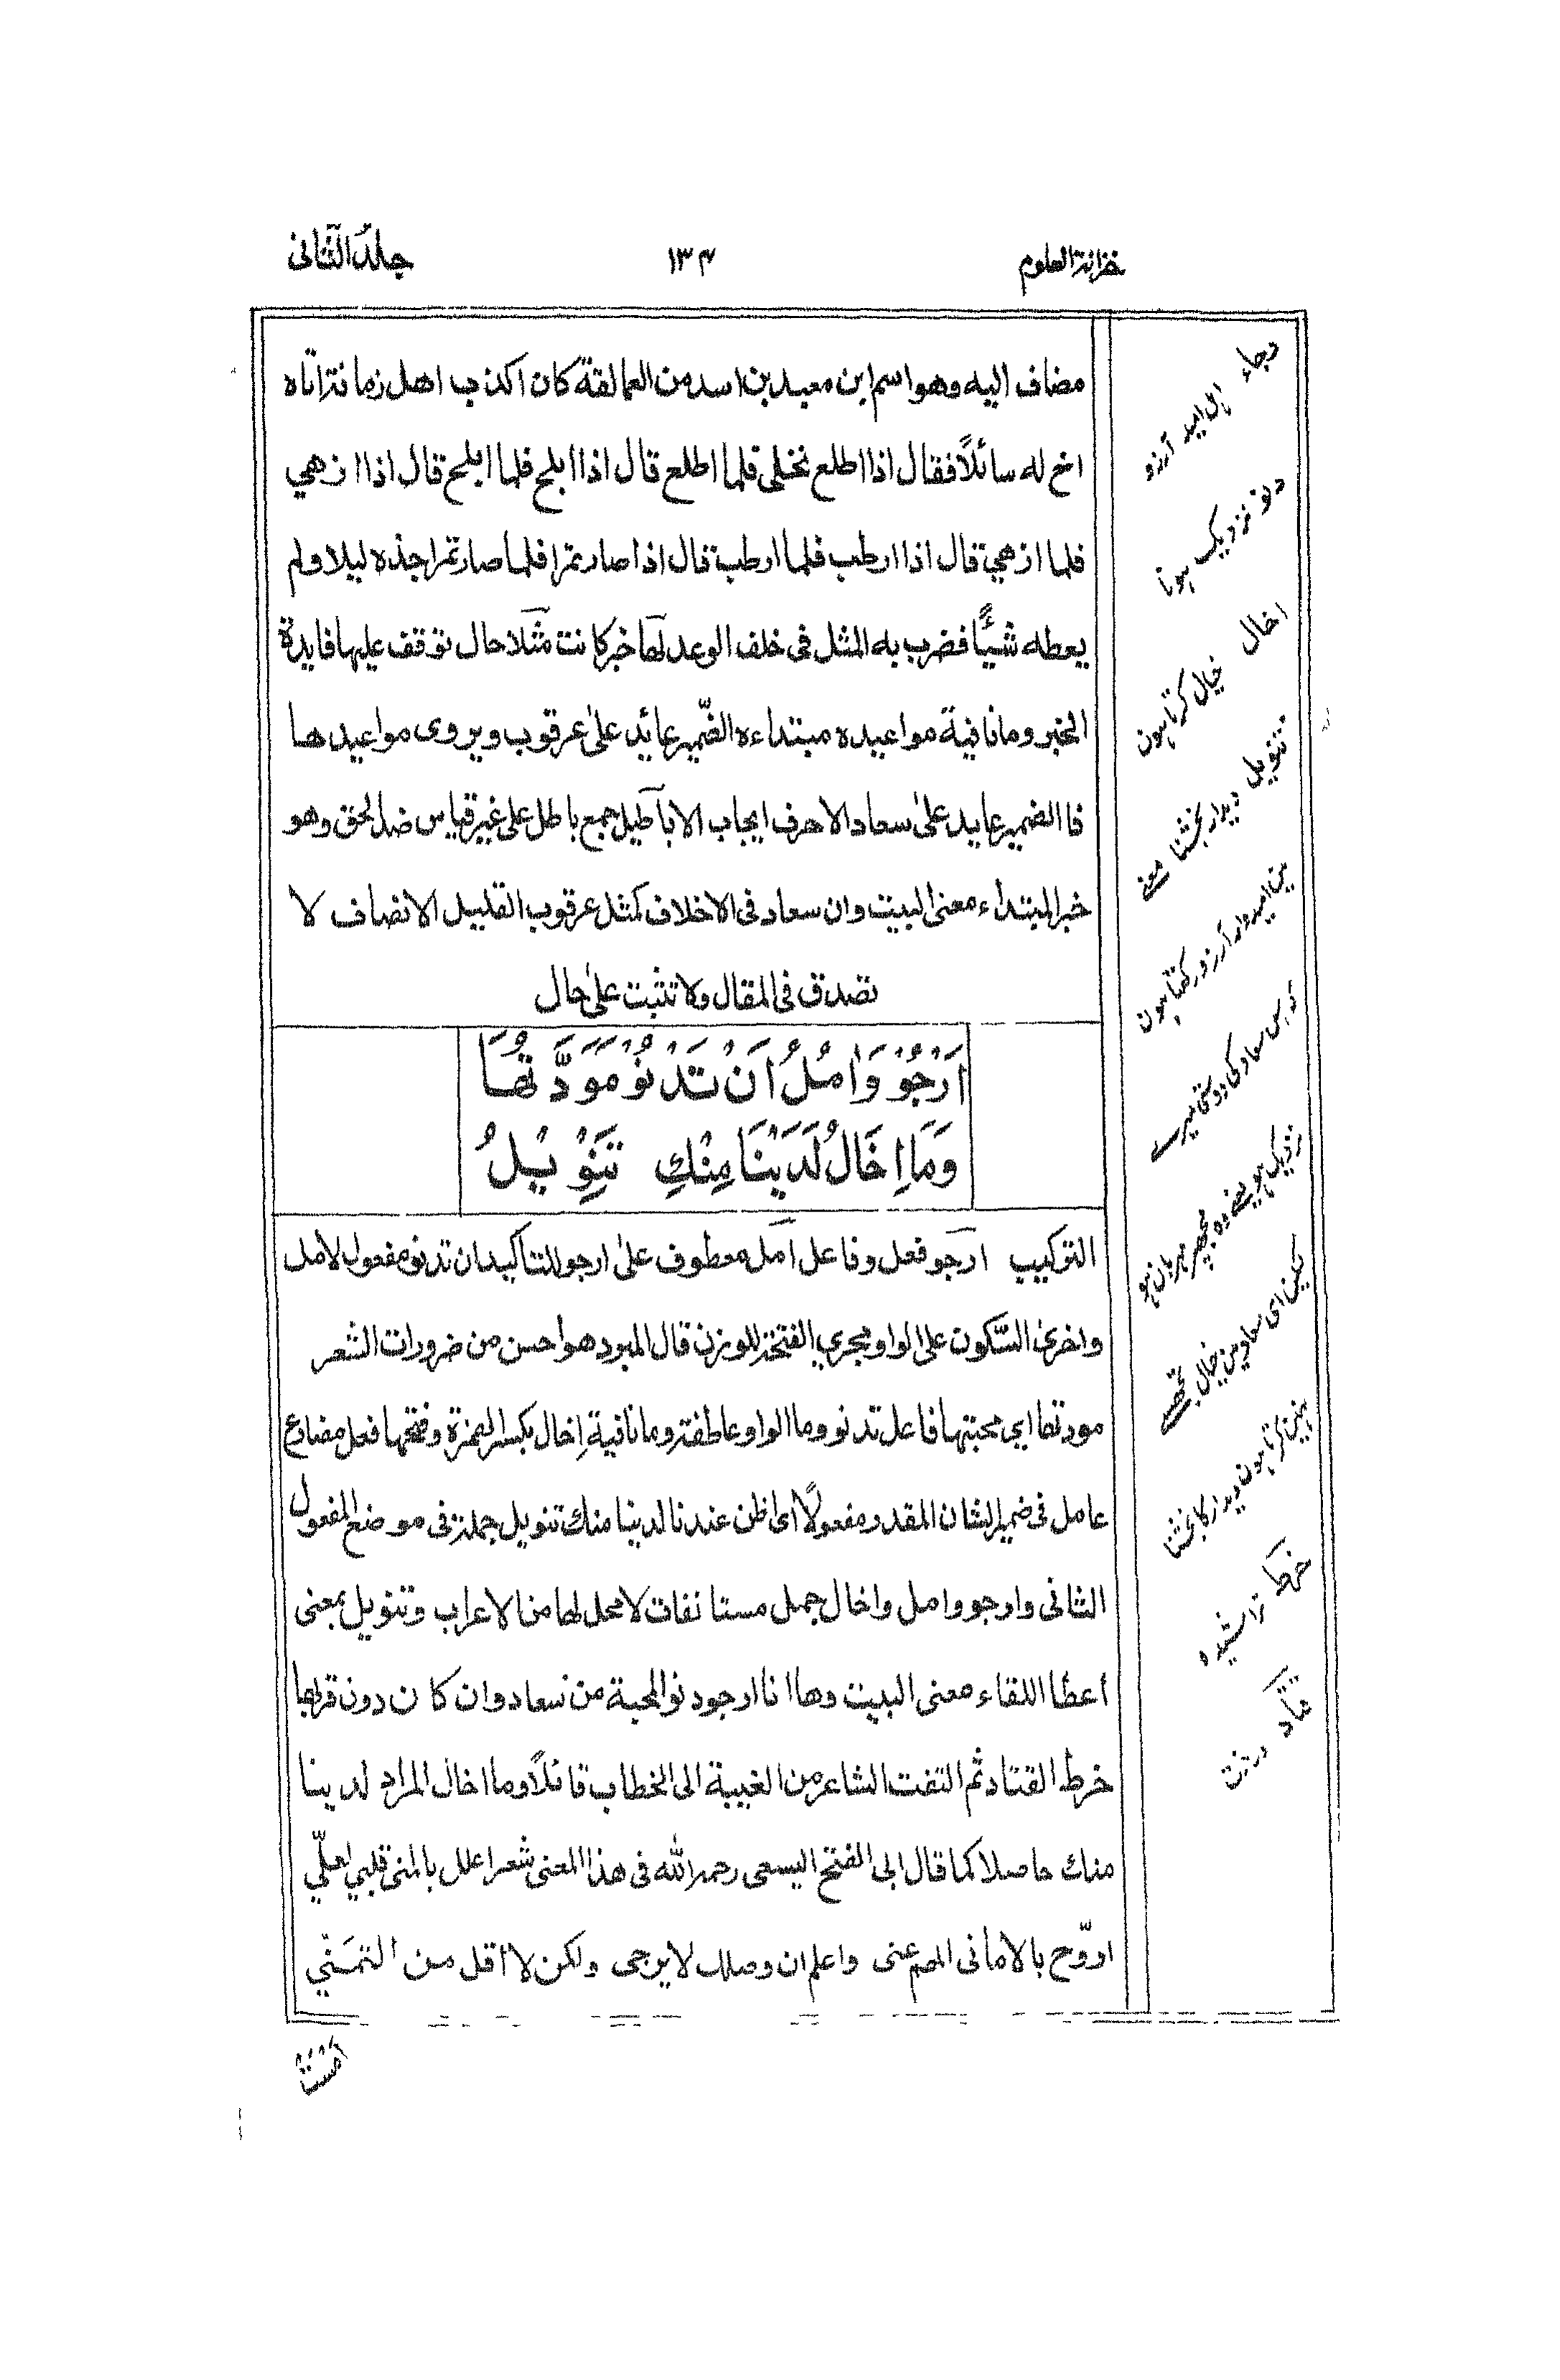 خزانة العلوم
۱۳۴
جلد الثّانی
مضاف اليه وهو اسم ابن معبد بن اسد من العمالقة كان اكذب اهل زمانه اتاه
اخ له سائلاً فقال اذا اطلع نخلي فلما اطلع قال اذا ابلح فلما ابلح قال اذا ازهي
فلما ازهي قال اذا ارطب فلما ارطب قال اذا صار تمرا فلما صار تمرا جذه ليلا ولم
يعطه شيئًا فضرب به المثل في خلف الوعد لها خبر كانت مثلا حال توقف عليها فايدة
الخبر وما نافية مواعيده مبتداء ه الضّمير عائد علىٰ عرقوب ويروى مواعيدها
فا الضمير عايد علىٰ سعاد الا حرف ايجاب الاباطيل جمع باطل على غير قياس ضد الحق وهو
خبر المبتداء معنى البيت وان سعاد في الاخلاف كمثل عرقوب القليل الانصاف لا
تصدق في المقال ولا تثبت علىٰ حال
اَرْجُوْ وَاٰمُلُ اَنْ تَدْنُوْ مَوَدَّتُهَا
وَمَا اِخَالُ لَدَيْنَا مِنْكِ تَنْوِيْلُ
التركيب ارجو فعل وفاعل آمل معطوف علىٰ ارجو للتاكيد ان تدنو مفعول لامل
واخرىٰ السّكون على الواو مجري الفتحة للوزن قال المبرد هو احسن من ضرورات الشعر
مودتها اي محبتها فاعل تدنو وما الواو عاطفة وما نافية اِخال بكسر الهمزة وفتحها فعل مضارع
عامل في ضمير الشان المقدر مفعولاً اى اظن عندنا لدينا منك تنويل جملة في موضع المفعول
الثانى وارجو وامل واخال جمل مستانفات لا محل لها من الاعراب وتنويل بمعنى
أعطا اللقاء معنى البيت وها انا ارجو دنو المحبة من سعاد وان كان دون قربها
خرط القتاد ثم التفت الشاعر من الغيبة الى الخطاب قائلاً وما اخال المراد لدينا
منك حاصلا كما قال ابى الفتح البسعى رحمه الله في هذا المعنى شعر اعلل بالمنى قلبي لعلّي
اروّح بالاماني الهم عنى واعلم ان وصلك لا يرجى ولكن لا اقل من التمنّي
رجاء امید آرزو
دنو نزدیک ہونا
اخال خیال کرتا ہون
تنویل دیدار بخشنا معنے
مین امیدوار آرزو رکھتا ہون
سعاد کی دوستی میرے
نزدیک ہو یعنے وہ مجھپر مہربان ہو
لیکن ای سعاد مین خیال تجھسے
نہین کرتا ہون دیدار کا بخشنا
خرط تراشیدہ
قتاد درخت
اَمْسَتْ